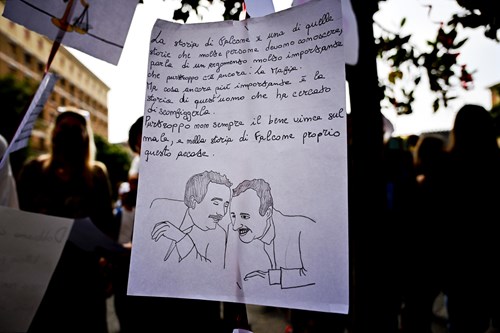 La storia di Falcone è una di quelle
storie che molte persone devono conoscere,
parla di un argomento molto importante
che purtroppo c'è ancora: La Mafia.
Ma cosa ancora più importante è la
storia di quest'uomo che ha cercato
di sconfiggerla.
Purtroppo non sempre il bene vince sul
male, e nella storia di Falcone proprio
questo accade.